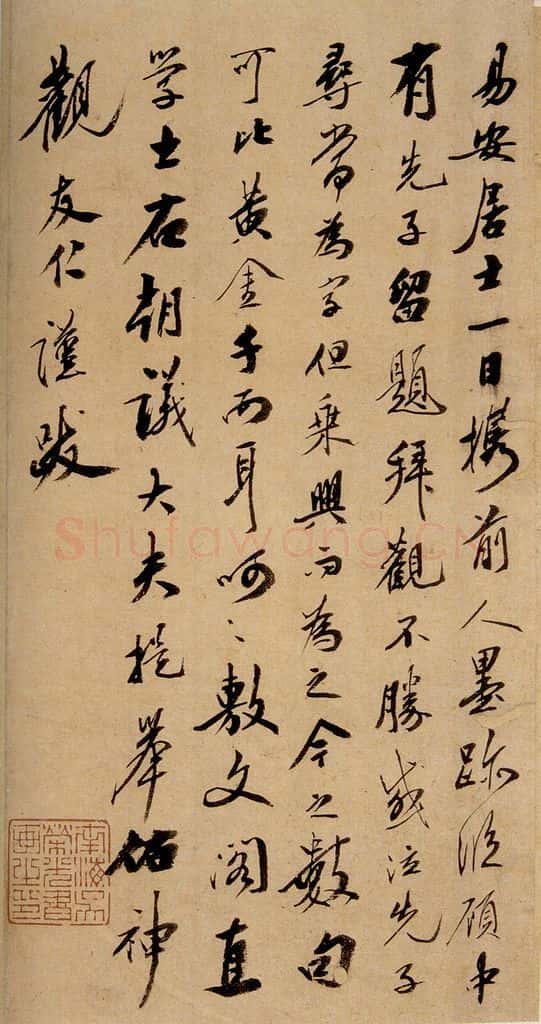 易安居士一日攜前人墨跡臨顧中
有先子留題拜觀不勝感泣先子
尋常為字但乗興而為之今之數句
可比黃金千兩耳呵〻敷文閣直
学士右朝議大夫提舉佑神
觀友仁謹跋
南海吳榮光書畫之印
Shufawang.CN